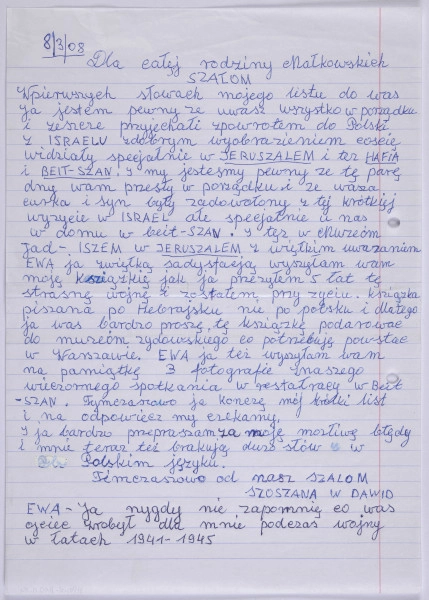 8/3/08
Dla całej rodziny Małkowskich
SZALOM
Wpierwszych słowach mojego listu do was
Ja jestem pewny ze uwasz wszystko w porządku
i zescie przyjechali zpowrotem do Polski
z ISRAELU zdobrym wyobrazieniem coscie
widziały specjalnie w JERUSZALEM i też HAFIA
i BEIT-SZAN. I my jesteśmy pewny ze tę parę
dny wam przeszły w porządku i ze wasza
curka i syn były zadowolony z tej krótkiej
wyzycie w ISRAEL ale specjalnie u nas
w domu w beit-SZAN. I tęz w Muzeóm
Jad-ISZEM w JERUSZALEM z wielkim uwazaniem
EWA ja zwielką sadysfacją wyszyłam wam
moję książkię jak ja przezyłem 5 łat tę
strasną wojnę i zostałem przy zyciu. książka
pisana po Hebrajsku nie po polsku i dlatego
ja was bardzo proszę tę książkę podarować
do muzeóm zydowskiego co potrzebują powstać
w Warszawie. EWA ja też wyszyłam wam
na pamiątkę 3 fotografie znaszego
wieczornego spotkania w restauracy w Beit
-SZAN. Tymczasowo ja konczę mój krótki list
i na odpowiecz my czekamy.
I ja bardzo przepraszam za moję mozliwę błędy
i mnie teraz też brakują duzo słów w
Polskim języku.
Timczasowo od nasz SZALOM
SZOSZANA W DAWID
EWA - Ja nygdy nie zapomnię co was
ojciec wrobył dla mnie podczas wojny
w łatach 1941-1945